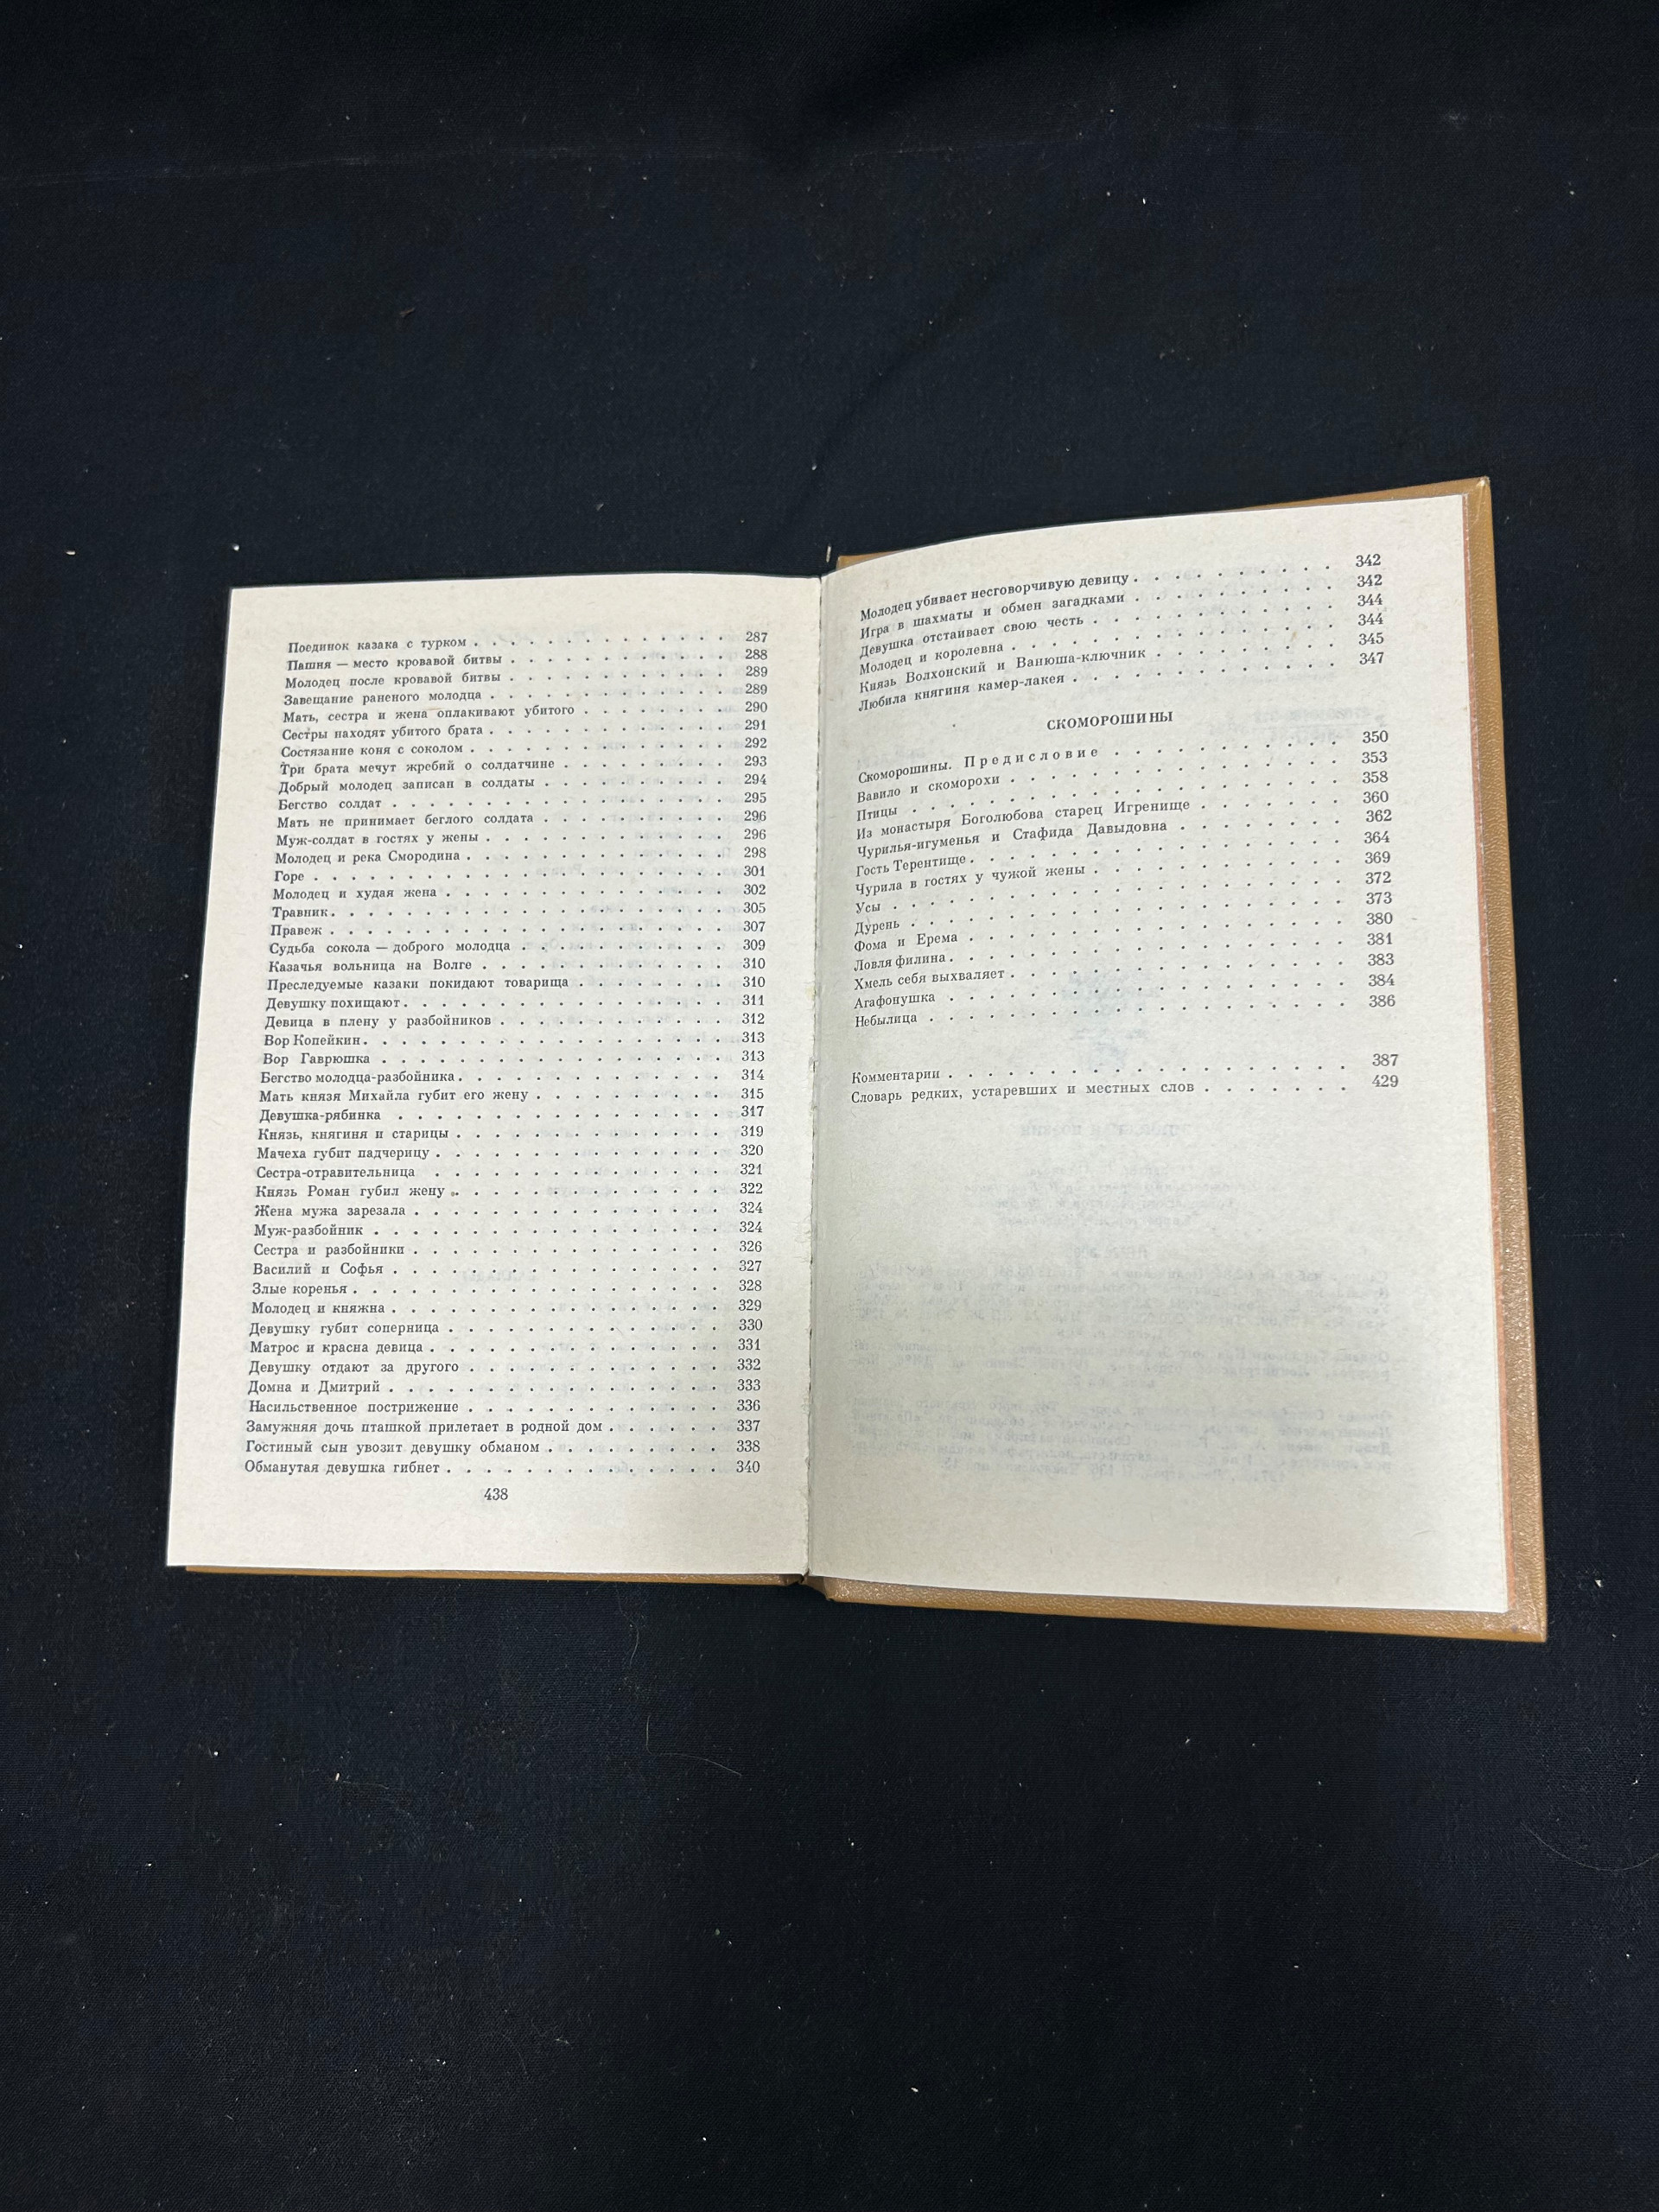 Поединок казака с турком . . . . . . . . . . . . . 287
Пашня — место кровавой битвы . . . . . . . . . . . 288
Молодец после кровавой битвы . . . . . . . . . . . 289
Завещание раненого молодца . . . . . . . . . . . . 289
Мать, сестра и жена оплакивают убитого . . . . . . . 290
Сестры находят убитого брата . . . . . . . . . . . . 291
Состязание коня с соколом . . . . . . . . . . . . . 292
Три брата мечут жребий о солдатчине . . . . . . . . 293
Добрый молодец записан в солдаты . . . . . . . . . 294
Бегство солдат . . . . . . . . . . . . . . . . . 295
Мать не принимает беглого солдата . . . . . . . . . 296
Муж-солдат в гостях у жены . . . . . . . . . . . . 296
Молодец и река Смородина . . . . . . . . . . . . . 298
Горе . . . . . . . . . . . . . . . . . . . . 301
Молодец и худая жена . . . . . . . . . . . . . . 302
Травник . . . . . . . . . . . . . . . . . . . 305
Правеж . . . . . . . . . . . . . . . . . . . 307
Судьба сокола — доброго молодца . . . . . . . . . . 309
Казачья вольница на Волге . . . . . . . . . . . . 310
Преследуемые казаки покидают товарища . . . . . . . 310
Девушку похищают . . . . . . . . . . . . . . . . 311
Девица в плену у разбойников . . . . . . . . . . . 312
Вор Копейкин . . . . . . . . . . . . . . . . . . 313
Вор Гаврюшка . . . . . . . . . . . . . . . . . 313
Бегство молодца-разбойника . . . . . . . . . . . . . 314
Мать князя Михайла губит его жену . . . . . . . . . 315
Девушка-рябинка . . . . . . . . . . . . . . . . 317
Князь, княгиня и старицы . . . . . . . . . . . . . 319
Мачеха губит падчерицу . . . . . . . . . . . . . . 320
Сестра-отравительница . . . . . . . . . . . . . . 321
Князь Роман губил жену . . . . . . . . . . . . . 322
Жена мужа зарезала . . . . . . . . . . . . . . . 324
Муж-разбойник . . . . . . . . . . . . . . . . . 324
Сестра и разбойники . . . . . . . . . . . . . . . 326
Василий и Софья . . . . . . . . . . . . . . . . 327
Злые коренья . . . . . . . . . . . . . . . . . . 328
Молодец и княжна . . . . . . . . . . . . . . . . 329
Девушку губит соперница . . . . . . . . . . . . . 330
Матрос и красна девица . . . . . . . . . . . . . . 331
Девушку отдают за другого . . . . . . . . . . . . 332
Домна и Дмитрий . . . . . . . . . . . . . . . . 333
Насильственное пострижение . . . . . . . . . . . . 336
Замужняя дочь пташкой прилетает в родной дом . . . . . 337
Гостиный сын увозит девушку обманом . . . . . . . . 338
Обманутая девушка гибнет . . . . . . . . . . . . . 340
438
Молодец убивает несговорчивую девицу . . . . . . . . . 342
Игра в шахматы и обмен загадками . . . . . . . . . 342
Девушка отстаивает свою честь . . . . . . . . . . . 344
Молодец и королевна . . . . . . . . . . . . . . . 344
Князь Волхонский и Ванюша-ключник . . . . . . . . 345
Любила княгиня камер-лакея . . . . . . . . . . . . 347
СКОМОРОШИНЫ
Скоморошины. Предисловие . . . . . . . . . . . 350
Вавило и скоморохи . . . . . . . . . . . . . . . 353
Птицы . . . . . . . . . . . . . . . . . . . . 358
Из монастыря Боголюбова старец Игренище . . . . . . 360
Чурилья-игуменья и Стафида Давыдовна . . . . . . . 362
Гость Терентище . . . . . . . . . . . . . . . . . 364
Чурила в гостях у чужой жены . . . . . . . . . . . 369
Усы . . . . . . . . . . . . . . . . . . . . 372
Дурень . . . . . . . . . . . . . . . . . . . 373
Фома и Ерема . . . . . . . . . . . . . . . . . 380
Ловля филина . . . . . . . . . . . . . . . . . . 381
Хмель себя выхваляет . . . . . . . . . . . . . . . 383
Агафонушка . . . . . . . . . . . . . . . . . . 384
Небылица . . . . . . . . . . . . . . . . . . . 386
Комментарии . . . . . . . . . . . . . . . . . . 387
Словарь редких, устаревших и местных слов . . . . . . 429